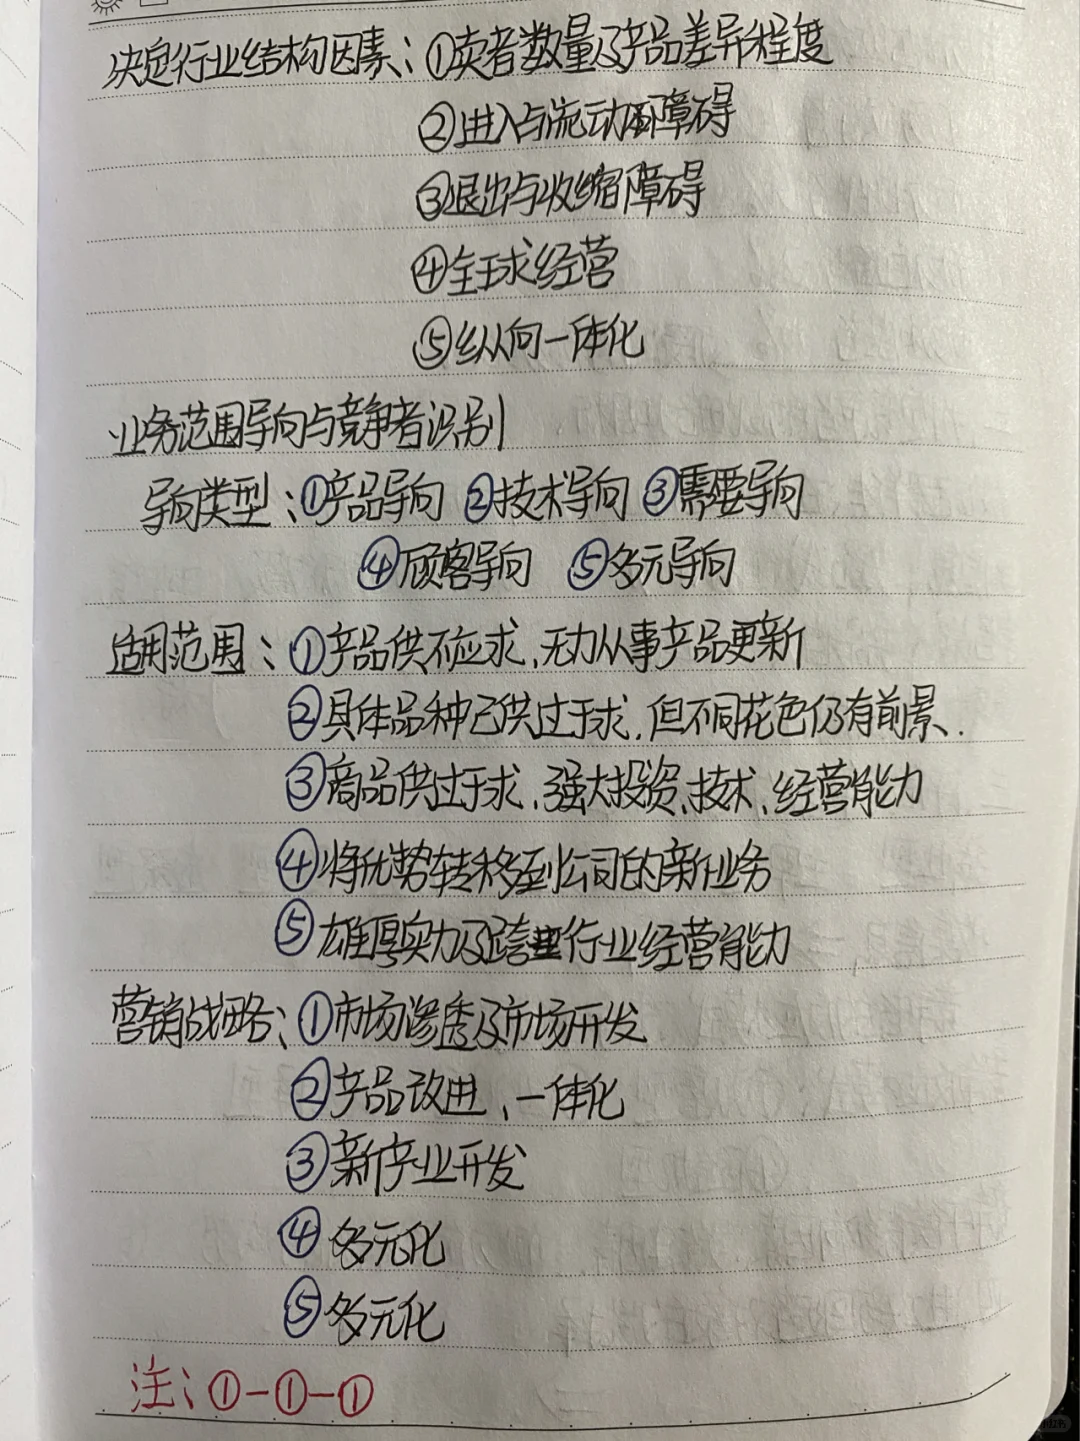 决定行业结构因素：①卖者数量及产品差异程度
②进入与流动障碍
③退出与收缩障碍
④全球经营
⑤纵向一体化
业务范围导向与竞争者识别
导向类型：①产品导向 ②技术导向 ③需要导向
④顾客导向 ⑤多元导向
适用范围：①产品供不应求、无力从事产品更新
②具体品种已供过于求，但不同花色仍有前景.
③商品供过于求、强大投资、技术、经营能力
④将优势转移到公司的新业务
⑤雄厚实力及跨行业经营能力
营销战略：①市场渗透及市场开发
②产品改进、一体化
③新产业开发
④多元化
⑤多元化
注：①-①-①